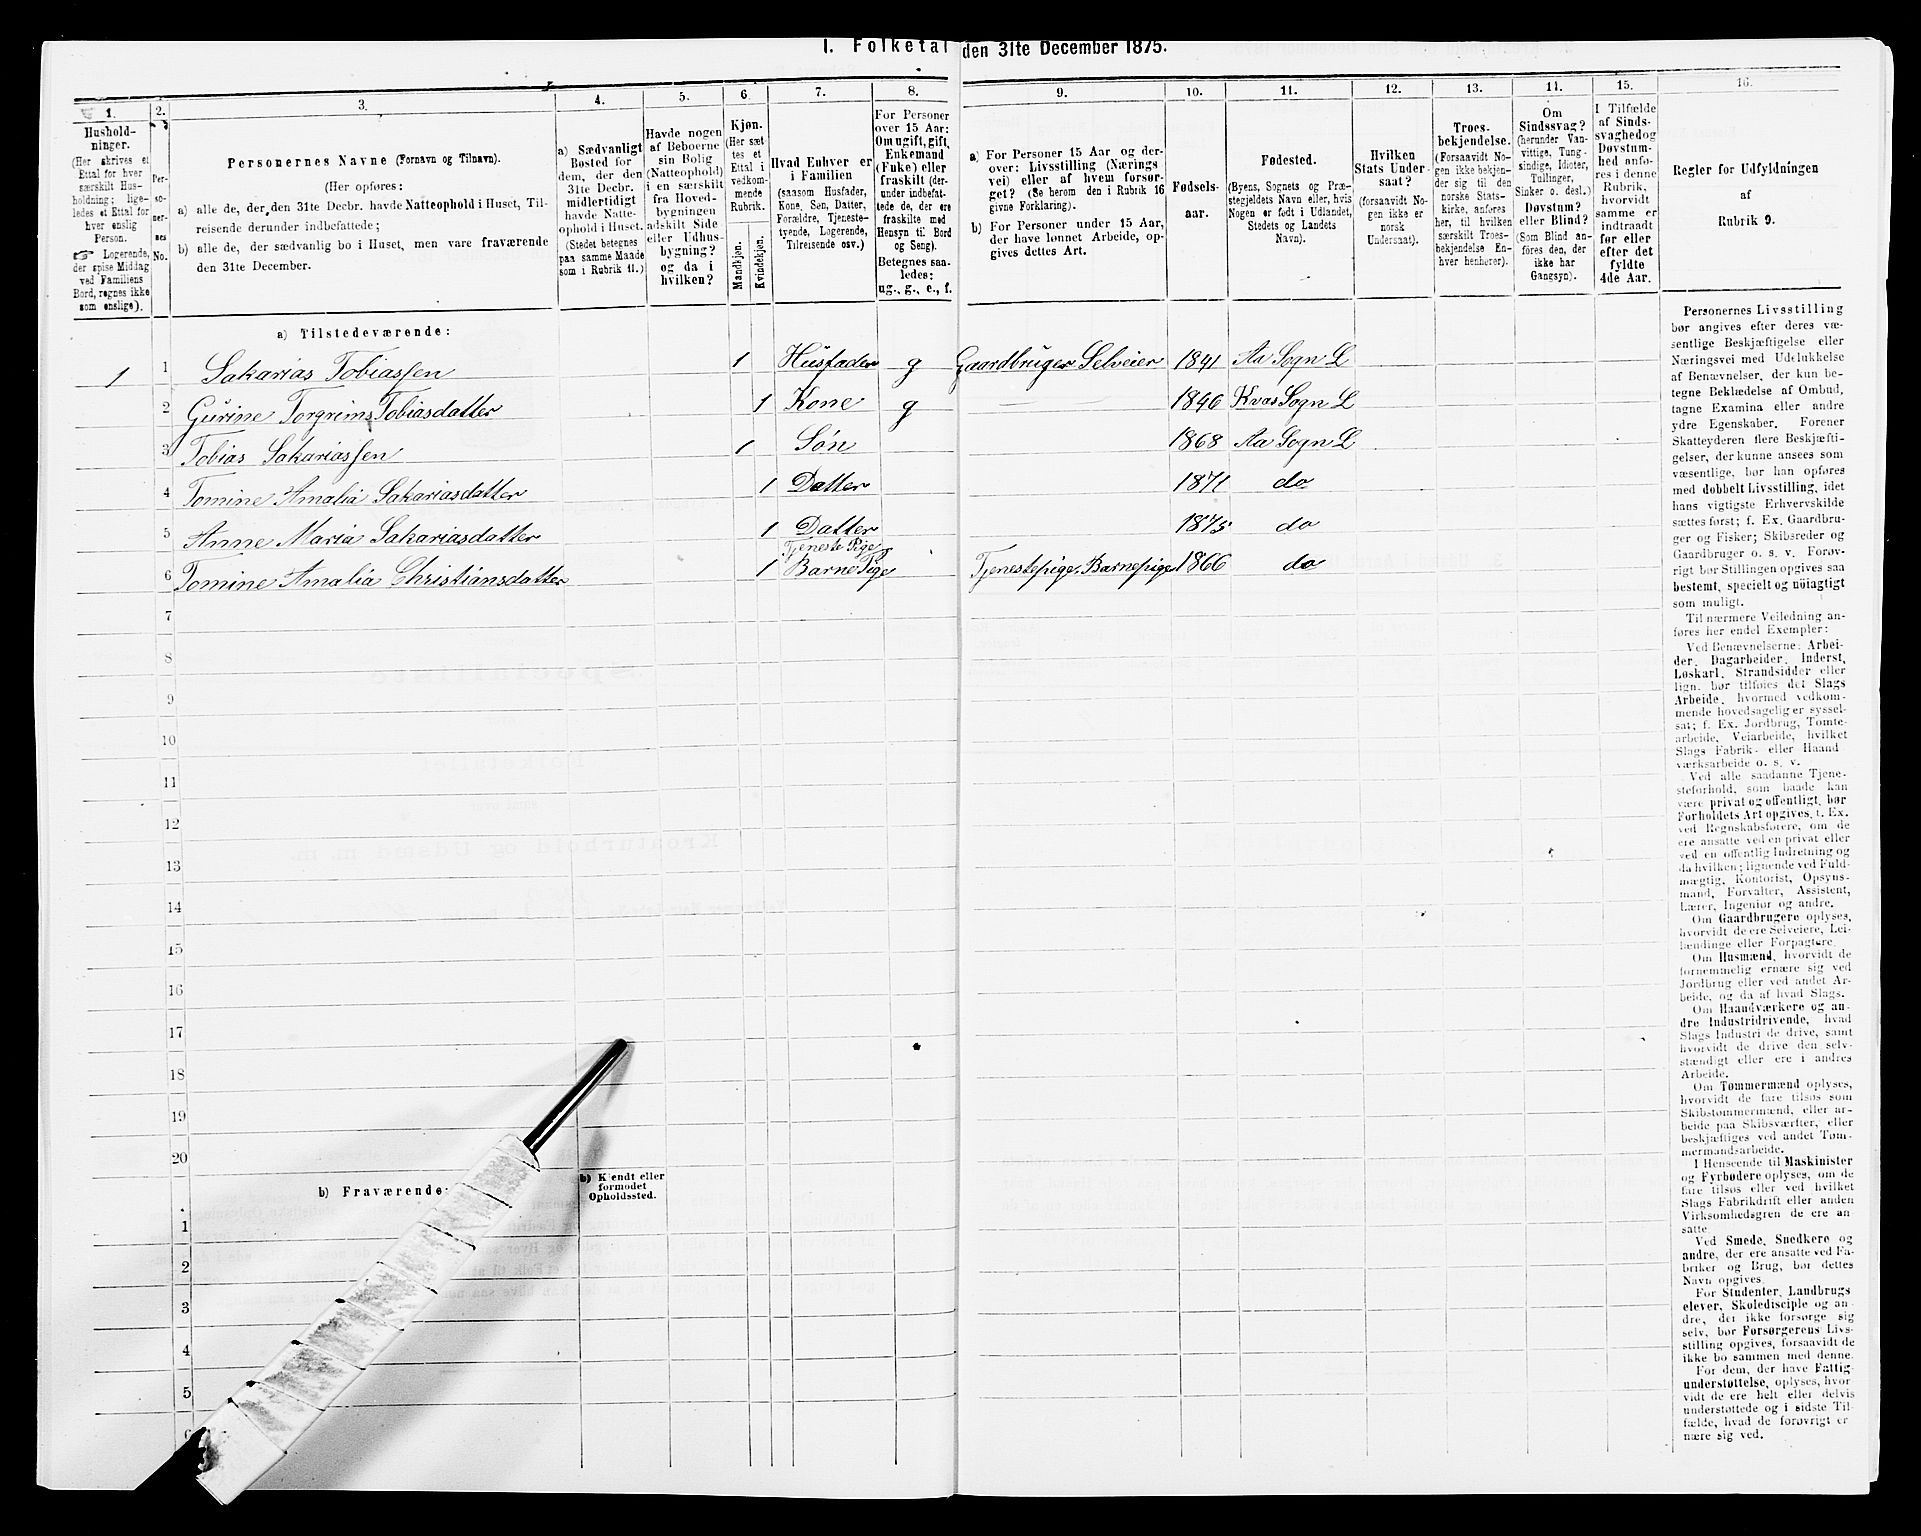 I. Folketal den 31te December 1875.
1.
2.
3.
4.
5.
6.
7.
8.
9.
10.
11.
12.
13.
14.
15.
16.
Hushold-
ninger.
(Her skrives et
Ettal for hver
særskilt Hus-
holdning; lige-
ledes et Ettal for
hver enslig
Person.
☞ Logerende,
der spise Middag
ved Familiens
Bord, regnes ikke
som enslige).
Per-
so-
ner-
nes
No.
Personernes Navne (Fornavn og Tilnavn).
(Her opføres:
a) alle de, der den 31te Decbr. havde Natteophold i Huset, Til-
reisende derunder indbefattede;
b) alle de, der sædvanlig bo i Huset, men vare fraværende
den 31te December.
a) Sædvanligt
Bosted for
dem, der den
31te Decbr.
midlertidigt
havde Natte-
ophold i Huset.
(Stedet betegnes
paa samme Maade
som i Rubrik 11.)
Havde nogen
af Beboerne
sin Bolig
(Natteophold)
i en særskilt
fra Hoved-
bygningen
adskilt Side
eller Udhus-
bygning?
og da i
hvilken?
Kjøn.
(Her sæt-
tes et
Ettal i
vedkom-
mende
Rubrik.
Mandkjøn.
Kvindekjøn.
Hvad Enhver er
i Familien
(saasom Husfader,
Kone, Søn, Datter,
Forældre, Tjeneste-
tyende, Logerende,
Tilreisende osv.)
For Personer
over 15 Aar:
Om ugift, gift,
Enkemand
(Enke) eller
fraskilt (der-
under indbefat-
tede de, der ere
fraskilte med
Hensyn til Bord
og Seng).
Betegnes saa-
ledes:
ug., g., e., f.
a) For Personer 15 Aar og der-
over: Livsstilling (Nærings
vei) eller af hvem forsør-
get? (Se herom den i Rubrik 16
givne Forklaring).
b) For Personer under 15 Aar,
der have lønnet Arbeide, op-
gives dettes Art.
Fødsels-
aar.
Fødested.
(Byens, Sognets og Præ-
stegjeldets Navn eller, hvis
Nogen er født i Udlandet,
Stedets og Landets
Navn).
Hvilken
Stats Under-
saat?
(forsaavidt No-
gen ikke er
norsk
Undersaat).
Troes-
bekjendelse.
(Forsaavidt No-
gen ikke bekjen-
der sig til den
norske Stats-
kirke, anføres
her, til hvilken
særskilt Troes-
bekjendelse En-
hver henhører).
Om
Sindssvag?
(herunder Van-
vittige, Tung-
sindige, Idioter,
Tullinger,
Sinker o. desl.)
Døvstum?
eller Blind?
(Som Blind an-
føres den, der
ikke har
Gangsyn).
I Tilfælde
af Sinds-
svaghed og
Døvstum-
hed anfø-
res i denne
Rubrik,
hvorvidt
samme er
indtraadt
før eller
efter det
fyldte
4de Aar.
Regler for Udfyldningen
af
Rubrik 9.
a) Tilstedeværende:
1 1 Sakarias Tobiassen 1 Husfader g Gaardbruger Selveier 1841 Aa Sogn L
2 Gurine Torgrims Tobiasdatter 1 Kone g 1846 Kvas Sogn L
3 Tobias Sakariassen 1 Søn 1868 Aa Sogn L
4 Tomine Amalia Sakariasdatter 1 Datter 1871 do
5 Anne Maria Sakariasdatter 1 Datter 1875 do
Tjeneste Pige
6 Tomine Amalia Christiansdatter 1 Barne Pige Tjenestepige. Barnepige 1866 do
7
8
9
10
11
12
13
14
15
16
17
18
19
20
b) Fraværende:
b) Kjendt eller
formodet
Opholdssted.
1
2
3
4
5
6
Personernes Livsstilling
bør angives efter deres væ-
sentlige Beskjæftigelse eller
Næringsvei med Udelukkelse
af Benævnelser, der kun be-
tegne Beklædelse af Ombud,
tagne Examina eller andre
ydre Egenskaber. Forener
Skatteyderen flere Beskjæfti-
gelser, der kunne ansees som
væsentlige, bør han opføres
med dobbelt Livsstilling, idet
hans vigtigste Erhvervskilde
sættes først; f. Ex. Gaardbru-
ger og Fisker; Skibsreder og
Gaardbruger o. s. v. Forøv-
rigt bør Stillingen opgives saa
bestemt, specielt og nøiagtigt
som muligt.
Til nærmere Veiledning an-
føres her endel Exempler:
Ved Benævnelserne: Arbei-
der, Dagarbeider, Inderst,
Løskarl, Strandsidder eller
lign. bør tilføies det Slags
Arbeide, hvormed vedkom-
mende hovedsagelig er syssel-
sat; f. Ex. Jordbrug, Tomte-
arbeide, Veiarbeide, hvilket
Slags Fabrik- eller Haand-
værksarbeide o. s. v.
Ved alle saadanne Tjene-
steforhold, som baade kan
være privat og offentligt, bør
Forholdets Art opgives, f. Ex.
ved Regnskabsførere, om de
ere ansatte ved en privat eller
ved en offentlig Indretning og
da hvilken; lignende ved Fuld-
mægtig, Kontorist, Opsyns-
mand, Forvalter, Assistent,
Lærer, Ingeniør og andre.
Om Gaardbrugere oplyses,
hvorvidt de ere Selveiere, Lei-
lændinge eller Forpagtere.
Om Husmænd, hvorvidt de
fornemmelig ernære sig ved
Jordbrug eller ved andet Ar-
beide, og da af hvad Slags.
Om Haandværkere og an-
dre Industridrivende, hvad
Slags Industri de drive, samt
hvorvidt de drive den selv-
stændigt eller ere i andres
Arbeide.
Om Tømmermænd oplyses,
hvorvidt de fare tilsøs som
Skibstømmermænd, eller ar-
beide paa Skibsværfter, eller
beskjæftiges ved andet Tøm-
mermandsarbeide.
I Henseende til Maskinister
og Fyrbødere oplyses, om de
fare tilsøs eller ved hvilket
Slags Fabrikdrift eller anden
Virksomhedsgren de ere an-
satte.
Ved Smede, Snedkere og
andre, der ere ansatte ved Fa-
briker og Brug, bør dettes
Navn opgives.
For Studenter, Landbrugs
elever, Skoledisciple og an-
dre, der ikke forsørge sig
selv, bør Forsørgerens Livs-
stilling opgives, forsaavidt de
ikke bo sammen med denne.
For dem, der have Fattig-
understøttelse, oplyses, hvor
vidt de ere helt eller delvis
understøttede og i sidste Til-
fælde, hvad de forøvrigt er
nære sig ved.